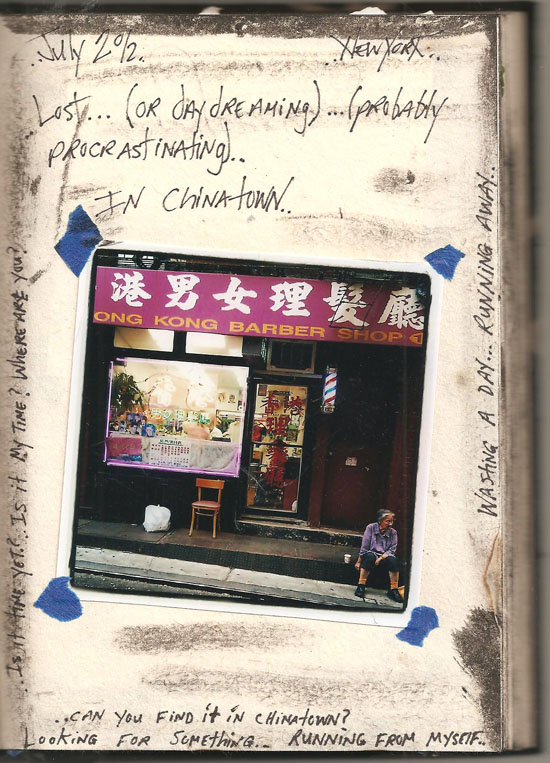 .July 2012.
.New York..
Lost... (or daydreaming)...(probably
procrastinating)..
In Chinatown..
港男女理髮廳
ONG KONG BARBER SHOP
Is it time yet?.. Is it my time? Where are you?
Wasting a day... Running away..
..Can you find it in Chinatown?
Looking for something... Running from myself..